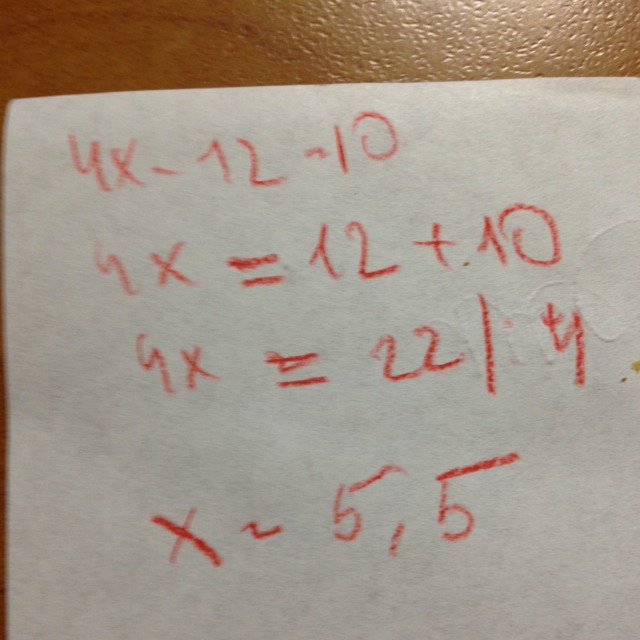 4x - 12 - 10
4x = 12 + 10
4x = 22 | : 4
x ~ 5,5